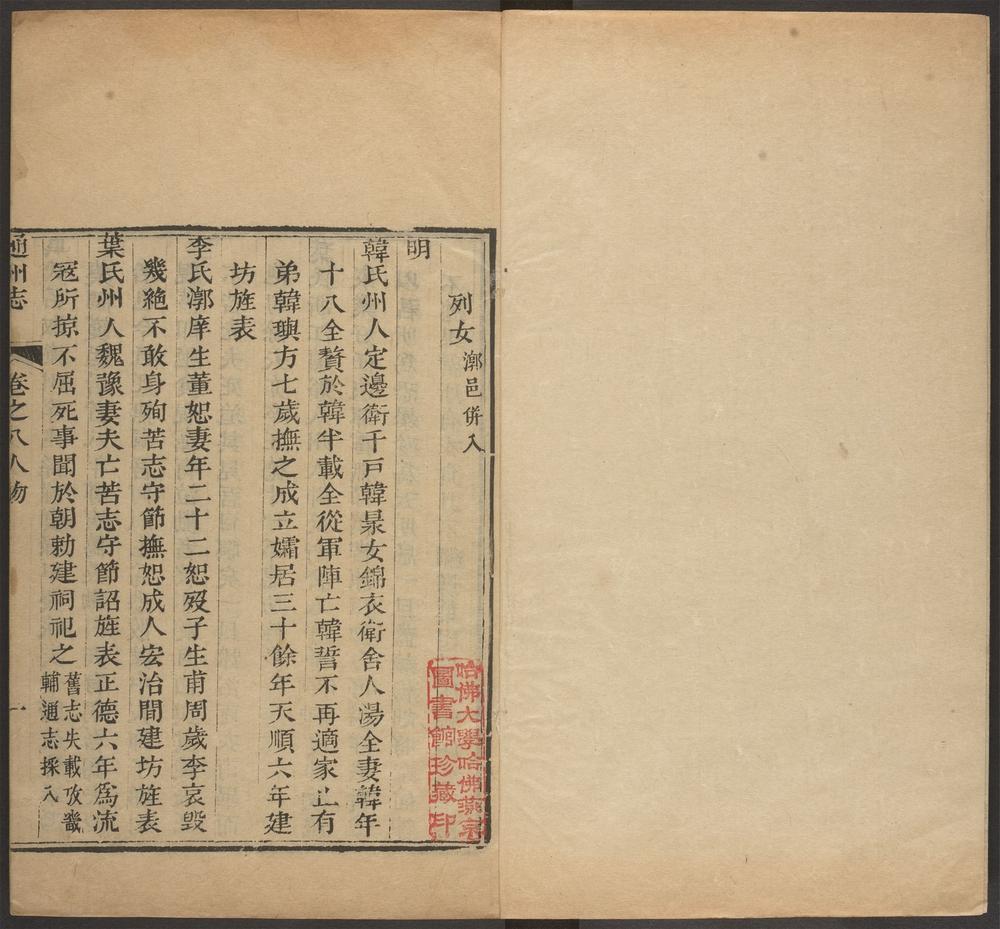 列女 漷邑併入
明
韓氏州人定邊衛千戸韓杲女錦衣衛舍人湯全妻韓年
十八全贅於韓半載全從軍陣亡韓誓不再適家止有
弟韓璵方七歲撫之成立孀居三十餘年天順六年建
坊旌表
李氏漷庠生董恕妻年二十二恕歿子生甫周歲李哀毀
幾絶不敢身殉苦志守節撫恕成人宏治間建坊旌表
葉氏州人魏豫妻夫亡苦志守節詔旌表正德六年爲流
冦所掠不屈死事聞於朝勅建祠祀之 舊志失載攷畿
輔通志採入
通州志 卷之八人物 一
哈佛大學哈佛燕京
圖書館珍藏印